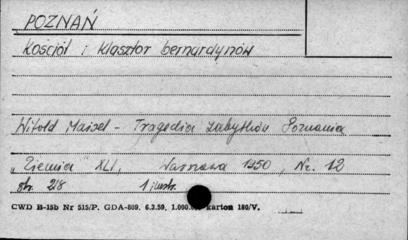 POZNAŃ
Kościół i klasztor bernardynów
Witold Maisel - Tragedia zabytków Poznania
„Ziemia" XLI, Warszawa 1950, Nr. 12
str. 218 1 ilustr.
CWD B-15b Nr 515/P. GDA-809. 6.3.59, 1.000.000 karton 180/V.